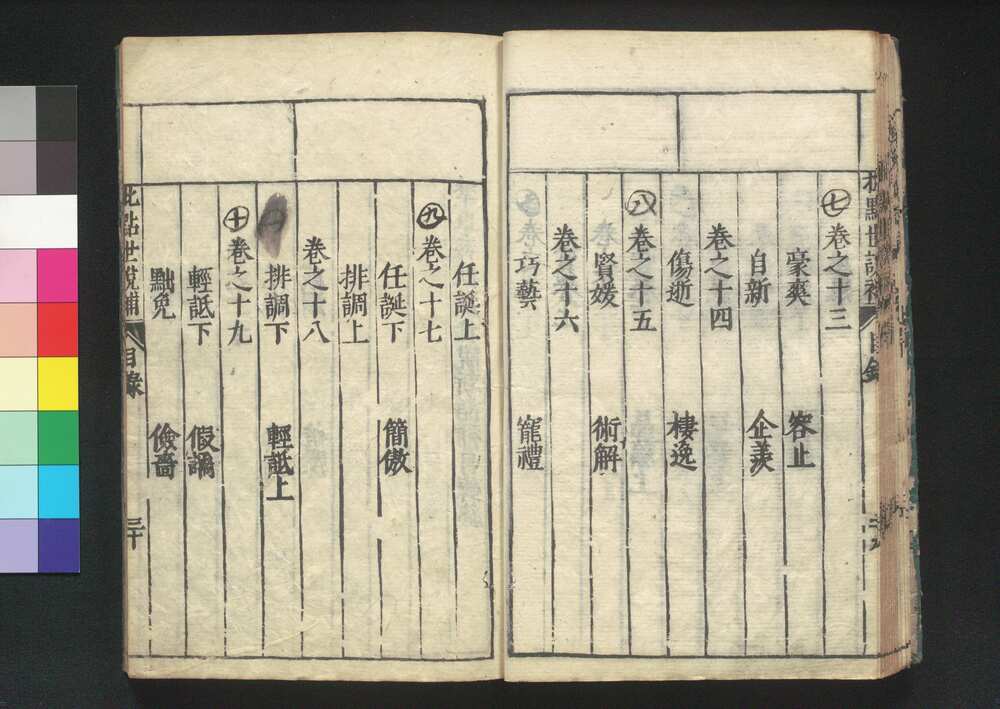 ㊆卷之十三
豪爽 容止
自新 企羨
卷之十四
傷逝 棲逸
㊇卷之十五
賢媛 術解
卷之十六
巧藝 寵禮
任誕上
㊈卷之十七
任誕下 簡傲
排調上
卷之十八
排調下 輕詆上
㊉卷之十九
輕詆下 假譎
黜免 儉嗇
批點世說補 目錄 三十